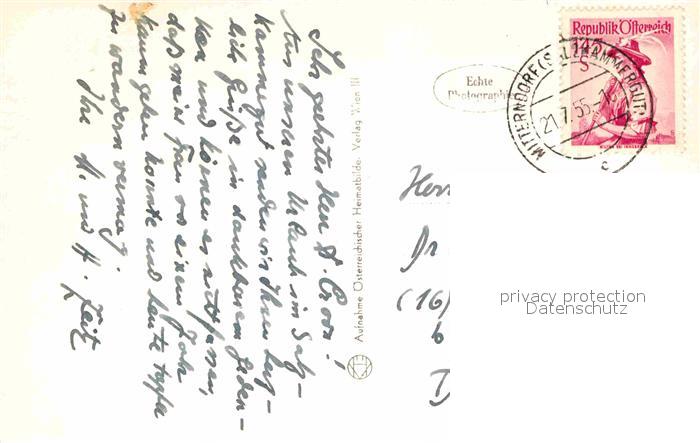 Sehr geehrter Herr Dr. Croon!
Aus unserem Urlaub im Salz-
kammergut senden wir Ihnen herz-
liche Grüße in dankbarem Geden-
ken und können es nicht fassen,
daß meine Frau vor einem Jahr
kaum gehen konnte und heute tapfer
zu wandern vermag.
Ihre H. und H. Zeitz
Aufnahme Österreichischer Heimatbilder Verlag Wien III
Echte
Photographie
Republik Österreich
1.45
S
MITTERNDORF (SALZKAMMERGUT)
21.7.55
c
Herr
Dr
(16)
b
D
privacy protection
Datenschutz